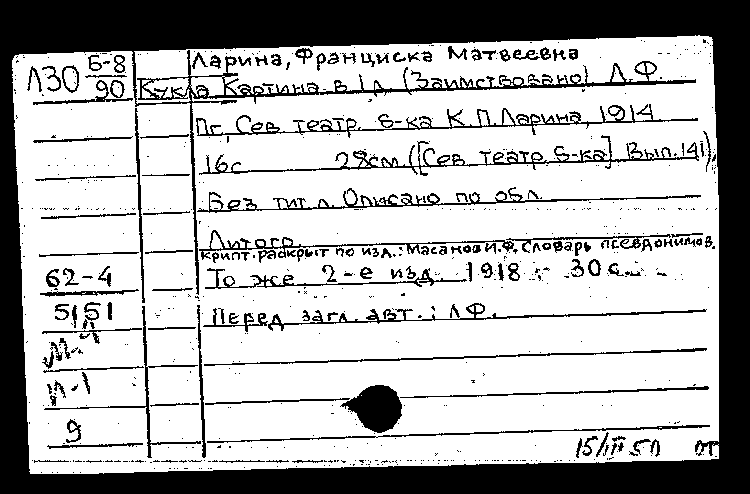 Ларина, Франциска Матвеевна
Л30 Б-8
90
Кукла Картина в 1 д. (Заимствовано) Л.Ф.
Пг, Сев театр. б-ка К.П.Ларина, 1914
16с 28см ([Сев театр б-ка] Вып.141).
Без тит л. Описано по обл.
Литогр.
крипт. раскрыт по изд.: Масанов И.Ф. Словарь псевдонимов.
62-4 То же 2-е изд. 1918 30 с.
5151 Перед загл. авт.: Л.Ф.
М-4
И-1
9
15/III 50 от